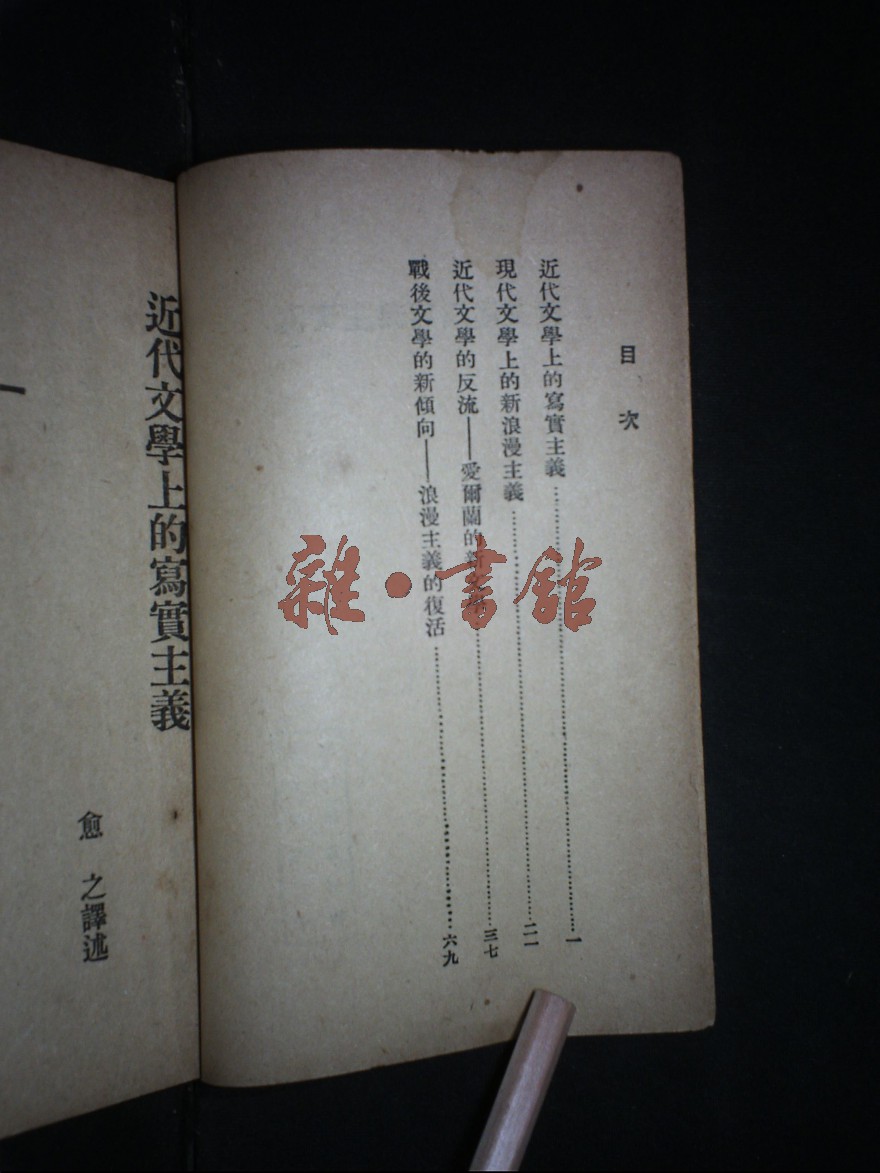 目次
近代文學上的寫實主義……一
現代文學上的新浪漫主義……二一
近代文學的反流——愛爾蘭的新文學……三七
戰後文學的新傾向——浪漫主義的復活……六九
近代文學上的寫實主義
愈之譯述
雜·書館